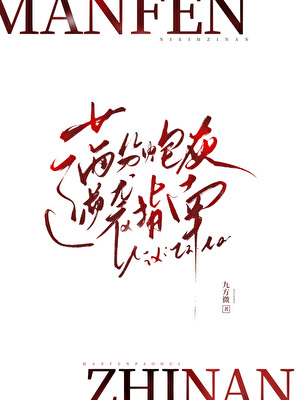 MANFEN
NIXIHZINAN
满分炮灰
逆袭指南
九方微
著
MANFENPAOHUI
ZHINAN